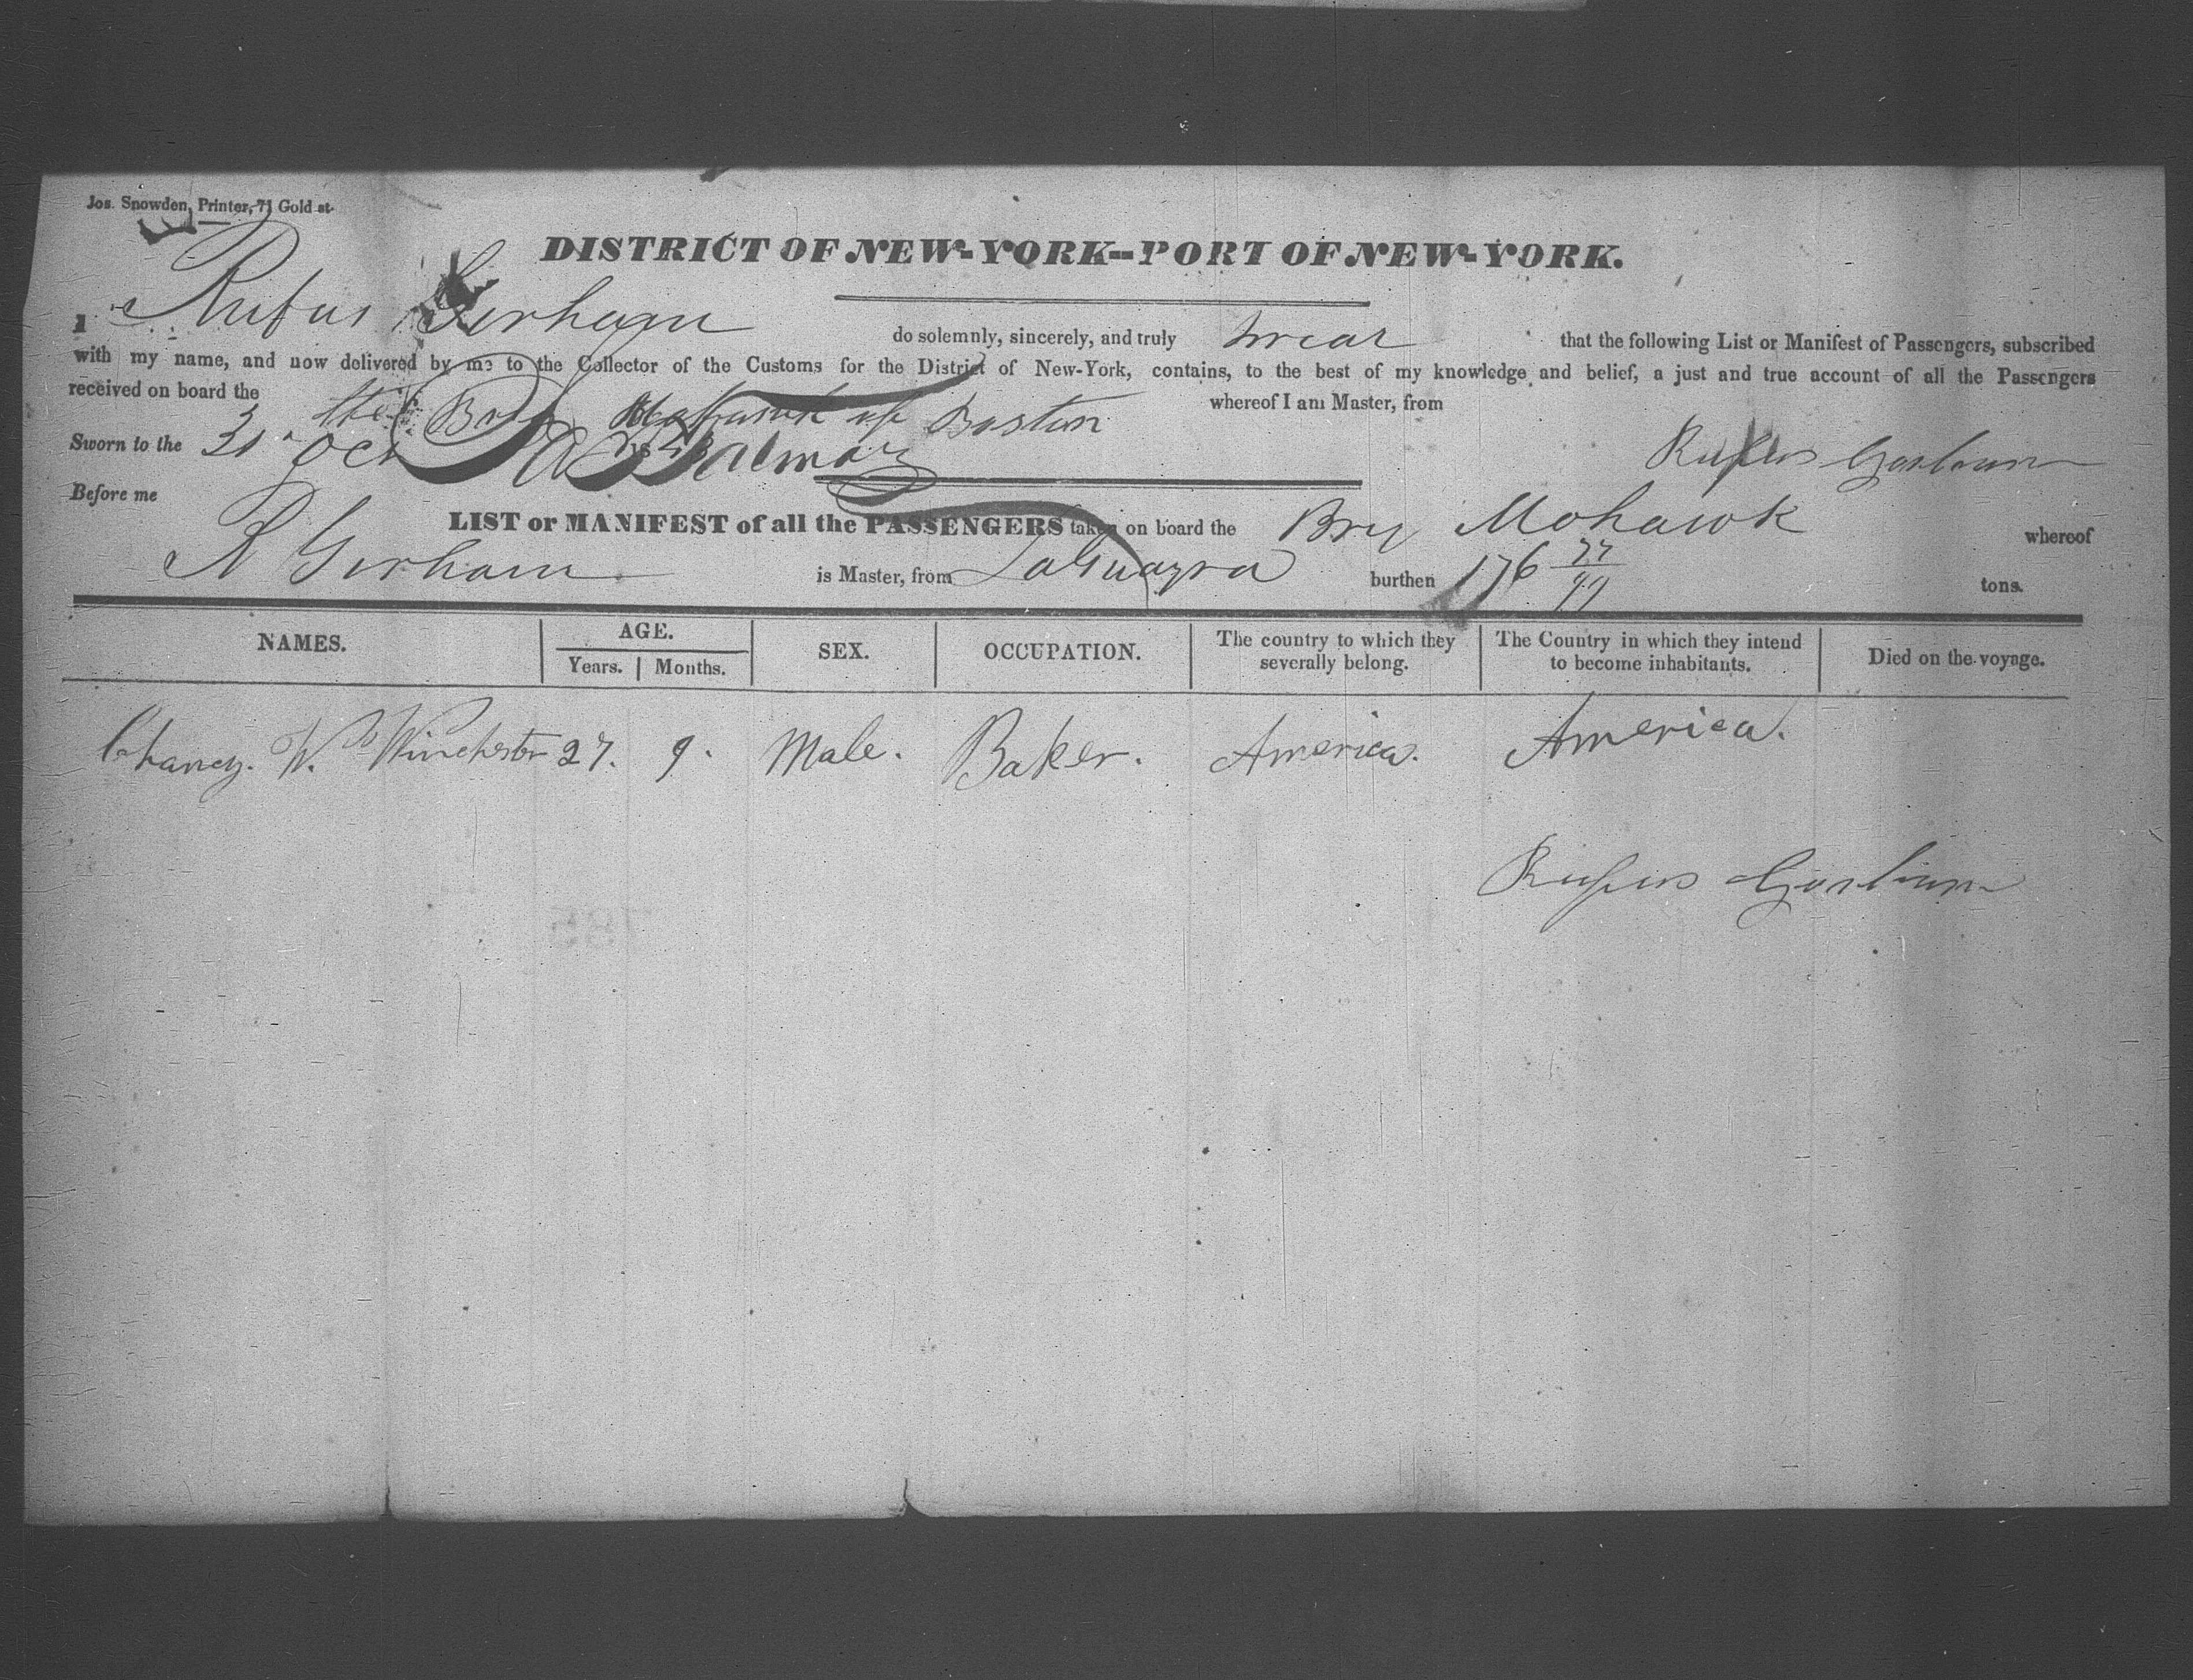 Jos. Snowden, Printer, 71 Gold st.
DISTRICT OF NEW-YORK--PORT OF NEW-YORK.
I Rufus Gorham do solemnly, sincerely, and truly swear that the following List or Manifest of Passengers, subscribed
with my name, and now delivered by me to the Collector of the Customs for the District of New-York, contains, to the best of my knowledge and belief, a just and true account of all the Passengers
received on board the the Brig Mohawk of Boston whereof I am Master, from
Sworn to the 31 Oct 18 Rufus Gorham
Before me
LIST or MANIFEST of all the PASSENGERS taken on board the Brig Mohawk whereof
R Gorham is Master, from LaGuayra burthen 176 tons.
NAMES. AGE. SEX. OCCUPATION. The country to which they severally belong. The Country in which they intend to become inhabitants. Died on the voyage.
Years. Months.
Chancy. W. Winchester 27. 9. Male. Baker. America. America.
Rufus Gorham